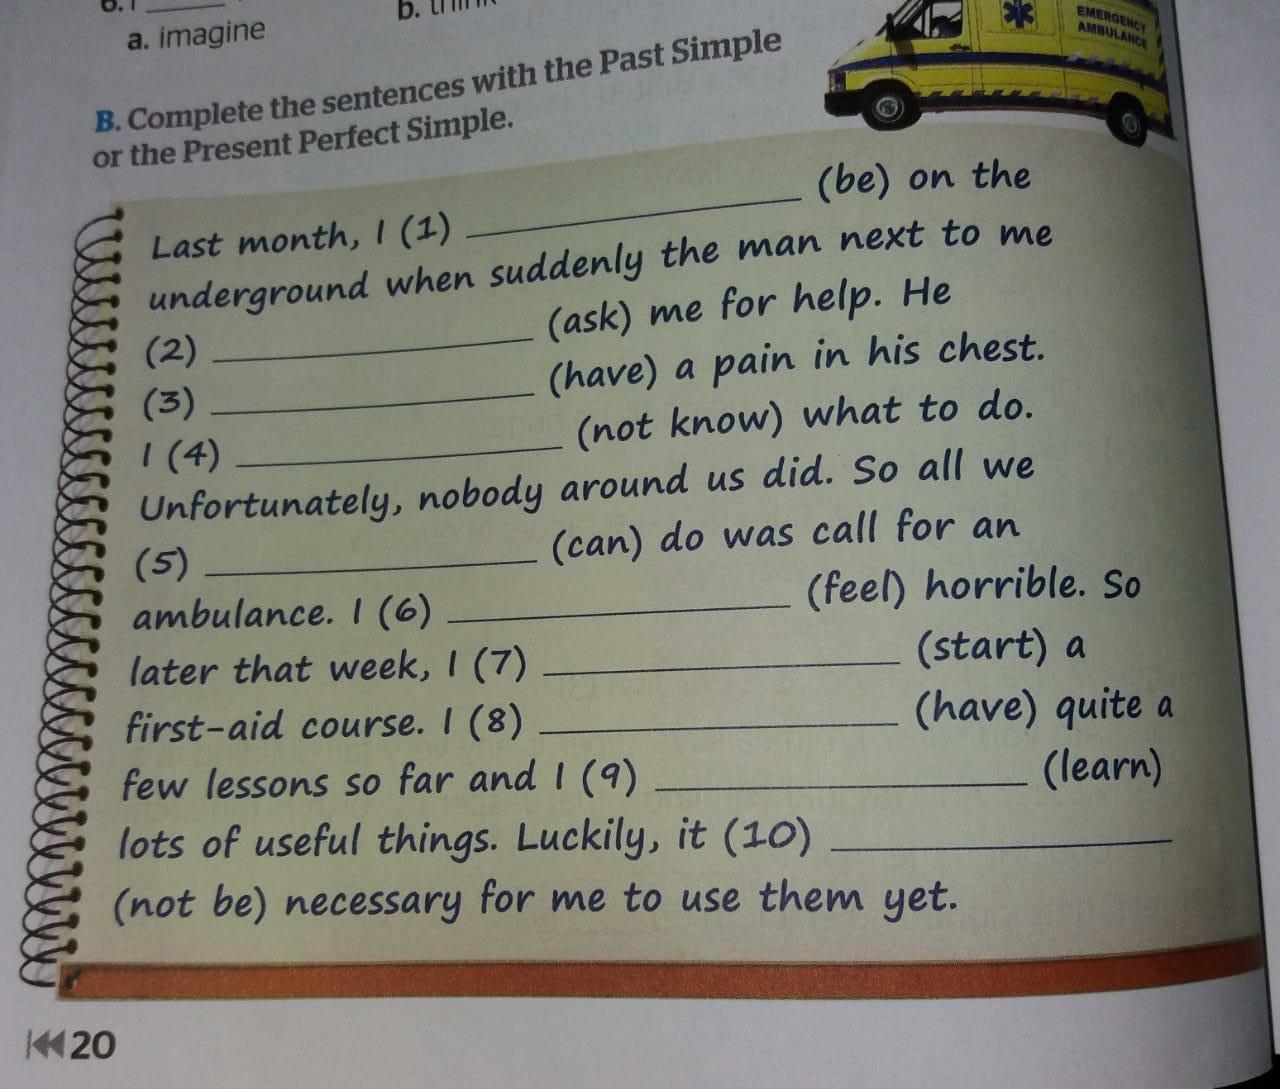 a. imagine
b. think
B. Complete the sentences with the Past Simple
or the Present Perfect Simple.
EMERGENCY
AMBULANCE
Last month, I (1) ____________ (be) on the
underground when suddenly the man next to me
(2) ____________ (ask) me for help. He
(3) ____________ (have) a pain in his chest.
I (4) ____________ (not know) what to do.
Unfortunately, nobody around us did. So all we
(5) ____________ (can) do was call for an
ambulance. I (6) ____________ (feel) horrible. So
later that week, I (7) ____________ (start) a
first-aid course. I (8) ____________ (have) quite a
few lessons so far and I (9) ____________ (learn)
lots of useful things. Luckily, it (10) ____________
(not be) necessary for me to use them yet.
20